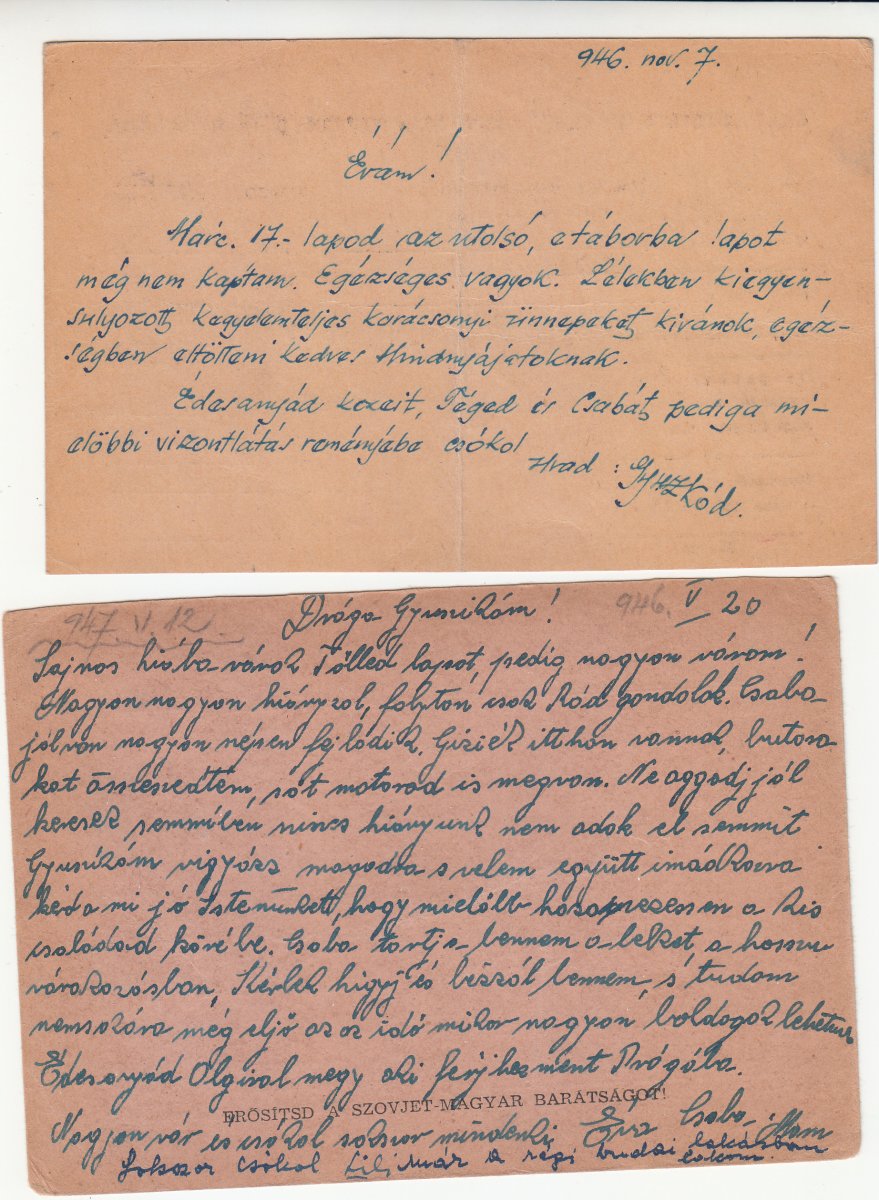 946. nov. 7.
Évám!
Marc. 17.- lapod az utolsó, e táborba lapot
még nem kaptam. Egézséges vagyok. Lélekben kiegyen-
sulyozott kegyelemteljes karácsonyi ünnepeket kivánok, egéz-
ségben eltölteni kedves Mindnyájatoknak.
Édesanyád kezeit, Téged és Csabát pedig a mi-
előbbi vizontlátás reményébe csókol
Urad :
947 V. 12
Drága Gyuszikám! 946. V/20
Sajnos hiába várok Tőlled lapot, pedig nagyon várom!
Nagyon nagyon hiányzol, folyton csak Rád gondolok. Csaba-
jól van nagyon szépen fejlődik. Giziék itthon vannak butora-
kat összeszedtem, sőt motorod is megvan. Ne aggódj jól
keresek semmiben nincs hiányunk nem adok el semmit
Gyuszikám vigyázz magadra s velem együtt imádkozva
kérd a mi jó Istenünkett, hogy mielőbb hazavezessen a kis
családod körébe. Csaba tartja bennem a lelket a hosszu
várakozásban, Kérlek higyj és bízzál bennem, s tudom
nemsokára még eljő az az idő mikor nagyon boldogok lehetünk
Édesanyád Olgival megy aki férjhezment Prágába.
ERŐSÍTSD A SZOVJET-MAGYAR BARÁTSÁGOT!
Nagyon vár és csókol sokszor mindenki Csaba
Sokszor csókol Lili már a régi budai
lakom.